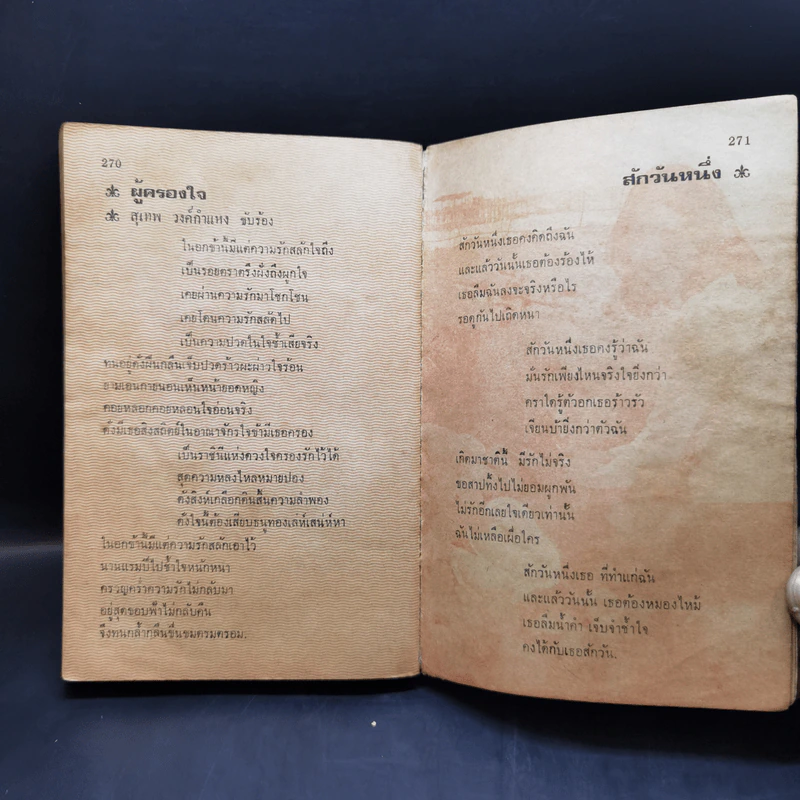 270
ผู้ครองใจ
สุเทพ วงศ์กำแหง ขับร้อง
ในอกข้านี้มีแต่ความรักสลักใจถึง
เป็นรอยตราตรึงฝั่งถึงผูกใจ
เคยผ่านความรักมาโชกโชน
เคยโดนความรักสลัดไป
เป็นความปวดในใจช้ำเสียจริง
ทนอยู่ดั่งฝืนกลืนเจ็บปวดร้าวผะผ่าวใจร้อน
ยามเอนกายนอนเห็นหน้ายอดหญิง
คอยหลอกคอยหลอนใจอ่อนจริง
ดั่งมีเธอสิงสถิตย์ในอาณาจักรใจข้ามีเธอครอง
เป็นราชินีแห่งดวงใจครองรักไว้ได้
สุดความหลงใหลหมายปอง
ดังสิงห์เกลือกดินสิ้นความลำพอง
ดั่งใจนี้ต้องเสียบธนูทองเล่ห์เสน่ห์หา
ในอกข้านี้มีแต่ความรักสลักเอาไว้
นวนแรมปีไปช้ำใจหนักหนา
ครวญคร่ำความรักไม่กลับมา
อยู่สุดขอบฟ้าไม่กลับคืน
จึงทนกล้ำกลืนขื่นขมตรมตรอม.
271
สักวันหนึ่ง
สักวันหนึ่งเธอคงคิดถึงฉัน
และแล้ววันนั้นเธอต้องร้องไห้
เธอลืมฉันลงจะจริงหรือไร
รอดูกันไปเถิดหนา
สักวันหนึ่งเธอคงรู้ว่าฉัน
มั่นรักเพียงไหนจริงใจยิ่งกว่า
คราใดรู้ตัวอกเธอร้าวรัว
เจียนบ้ายิ่งกว่าตัวฉัน
เกิดมาชาตินี้ มีรักไม่จริง
ขอสาปทิ้งไปไม่ยอมผูกพัน
ไม่รักอีกเลยใจเดียวเท่านั้น
ฉันไม่เหลือเผื่อใคร
สักวันหนึ่งเธอ ที่ทำแก่ฉัน
และแล้ววันนั้น เธอต้องหมองไหม้
เธอลืมน้ำคำ เจ็บจำช้ำใจ
คงได้กับเธอสักวัน.